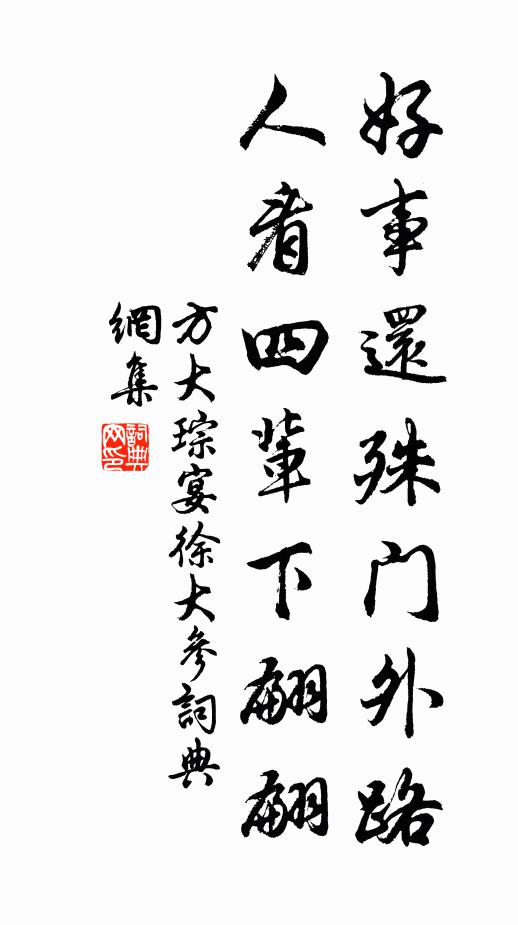 好事還殊门外路
人看四輩下翩翩
方大琮宴徐大參詞典
網集
詞典網印